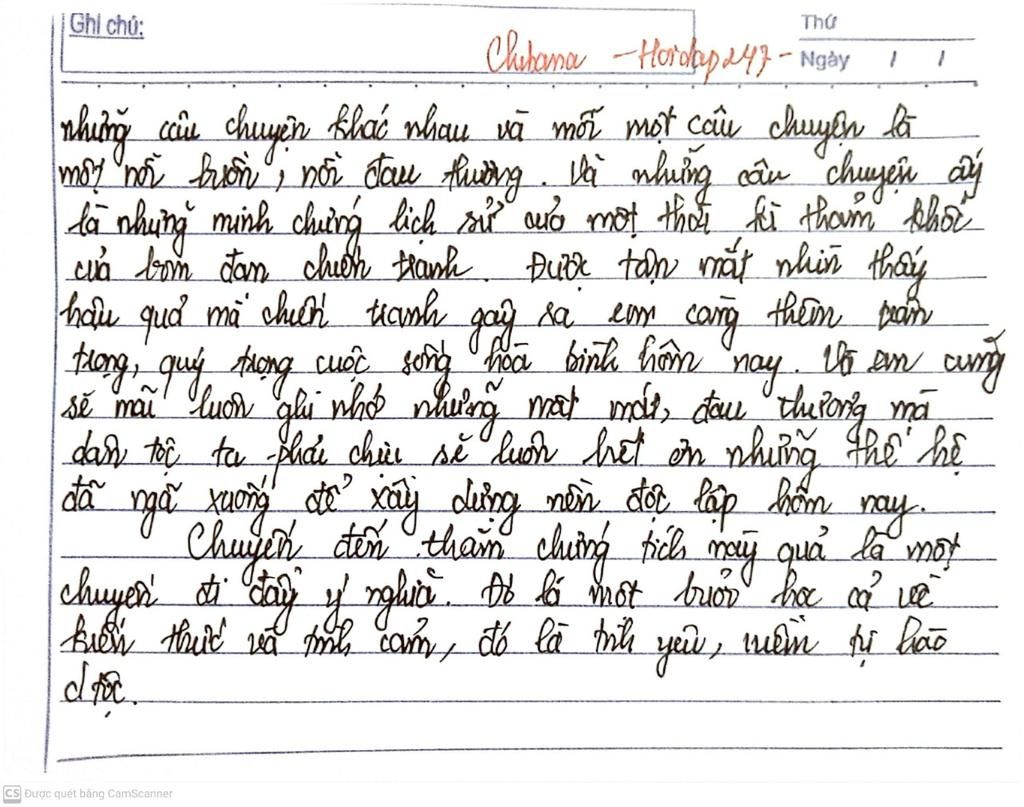 Ghi chú:
Thứ
Chibana - Hoidap247 - Ngày / /
những câu chuyện khác nhau và mỗi một câu chuyện là
một nỗi buồn, nỗi đau thương. Và những câu chuyện ấy
là những minh chứng lịch sử của một thời kì thảm khốc
của bom đạn chiến tranh. Được tận mắt nhìn thấy
hậu quả mà chiến tranh gây ra em càng thêm trân
trọng, quý trọng cuộc sống hoà bình hôm nay. Và em cũng
sẽ mãi luôn ghi nhớ những mất mát, đau thương mà
dân tộc ta phải chịu sẽ luôn biết ơn những thế hệ
đã ngã xuống để xây dựng nền độc lập hôm nay.
Chuyến đến thăm chứng tích này quả là một
chuyến đi đầy ý nghĩa. Đó là một buổi học cả về
kiến thức và tình cảm, đó là tình yêu, niềm tự hào
d tộc.
CS Được quét bằng CamScanner